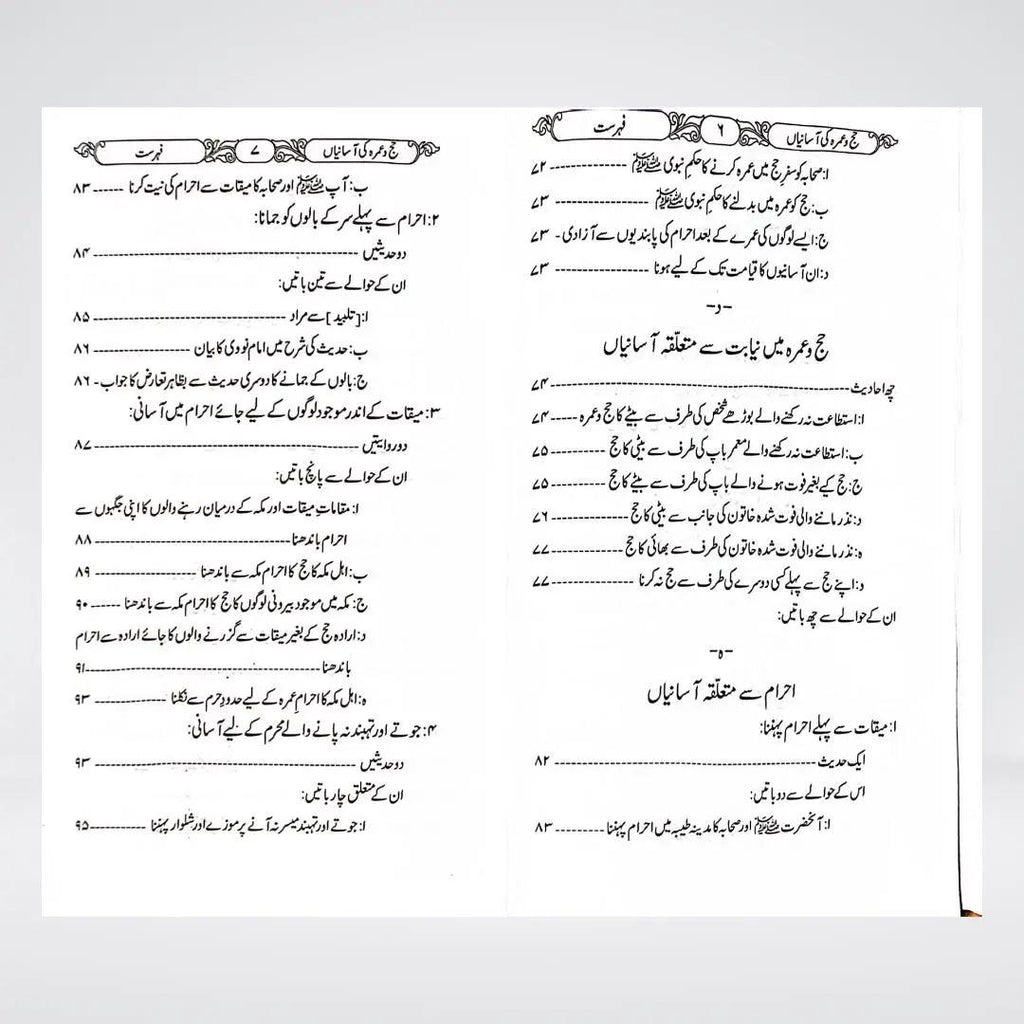 حج و عمرہ کی آسانیاں ۶ فہرست
ا: صحابہ کو سفرِ حج میں عمرہ کرنے کا حکمِ نبوی ﷺ ---------- ۷۲
ب: حج کو عمرہ میں بدلنے کا حکمِ نبوی ﷺ ------------ ۷۳
ج: ایسے لوگوں کی عمرے کے بعد احرام کی پابندیوں سے آزادی - ۷۳
د: ان آسانیوں کا قیامت تک کے لیے ہونا ------------ ۷۳
-د-
حج و عمرہ میں نیابت سے متعلّقہ آسانیاں
چھ احادیث ---------------------------------- ۷۴
ا: استطاعت نہ رکھنے والے بوڑھے شخص کی طرف سے بیٹے کا حج و عمرہ ----- ۷۴
ب: استطاعت نہ رکھنے والے معمر باپ کی طرف سے بیٹی کا حج ---------- ۷۵
ج: حج کیے بغیر فوت ہونے والے باپ کی طرف سے بیٹے کا حج ---------- ۷۵
د: نذر ماننے والی فوت شدہ خاتون کی جانب سے بیٹی کا حج ------------ ۷۶
ہ: نذر ماننے والی فوت شدہ خاتون کی طرف سے بھائی کا حج ----------- ۷۷
و: اپنے حج سے پہلے کسی دوسرے کی طرف سے حج نہ کرنا ------------ ۷۷
ان کے حوالے سے چھ باتیں:
-ہ-
احرام سے متعلّقہ آسانیاں
ا: میقات سے پہلے احرام پہننا:
ایک حدیث ---------------------------------- ۸۲
اس کے حوالے سے دو باتیں:
ا: آنحضرت ﷺ اور صحابہ کا مدینہ طیبہ میں احرام پہننا --------- ۸۳
حج و عمرہ کی آسانیاں ۷ فہرست
ب: آپ ﷺ اور صحابہ کا میقات سے احرام کی نیت کرنا ------ ۸۳
۲: احرام سے پہلے سر کے بالوں کو جمانا:
دو حدیثیں ---------------------------------- ۸۴
ان کے حوالے سے تین باتیں:
ا: [تلبید] سے مراد ------------------------ ۸۵
ب: حدیث کی شرح میں امام نووی کا بیان ------------ ۸۶
ج: بالوں کے جمانے کا دوسری حدیث سے بظاہر تعارض کا جواب - ۸۶
۳: میقات کے اندر موجود لوگوں کے لیے جائے احرام میں آسانی:
دو روایتیں ---------------------------------- ۸۷
ان کے حوالے سے پانچ باتیں:
ا: مقاماتِ میقات اور مکہ کے درمیان رہنے والوں کا اپنی جگہوں سے
احرام باندھنا ------------------------ ۸۸
ب: اہل مکہ کا حج کا احرام مکہ سے باندھنا ------------ ۸۹
ج: مکہ میں موجود بیرونی لوگوں کا حج کا احرام مکہ سے باندھنا ------ ۹۰
د: ارادہ حج کے بغیر میقات سے گزرنے والوں کا جائے ارادہ سے احرام
باندھنا ---------------------------- ۹۱
ہ: اہل مکہ کا احرامِ عمرہ کے لیے حدودِ حرم سے نکلنا ------------ ۹۳
۴: جوتے اور تہبند نہ پانے والے محرم کے لیے آسانی:
دو حدیثیں ---------------------------------- ۹۳
ان کے متعلق چار باتیں:
ا: جوتے اور تہبند میسر نہ آنے پر موزے اور شلوار پہننا --------- ۹۵